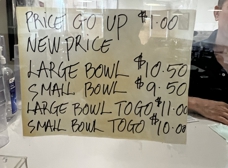 PRICE GO UP $1.00
NEW PRICE
LARGE BOWL $10.50
SMALL BOWL $9.50
LARGE BOWL TOGO $11.00
SMALL BOWL TOGO $10.00